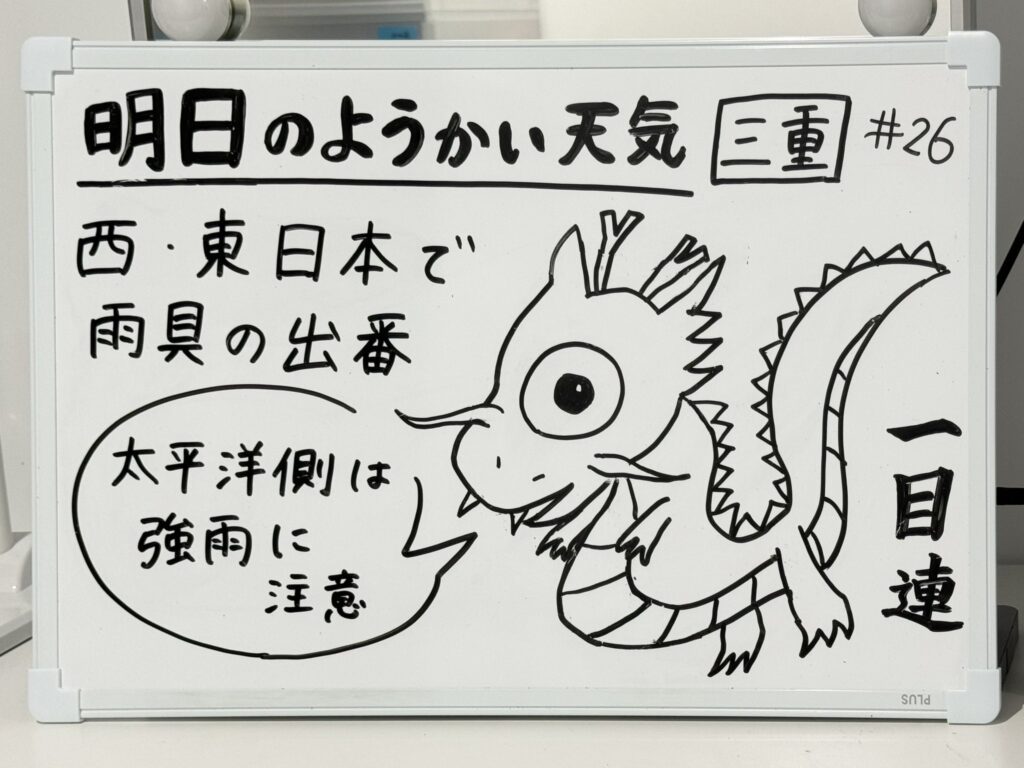 明日のようかい天気 三重 #26
西・東日本で
雨具の出番
太平洋側は
強雨に
注意
一目連
PLUS